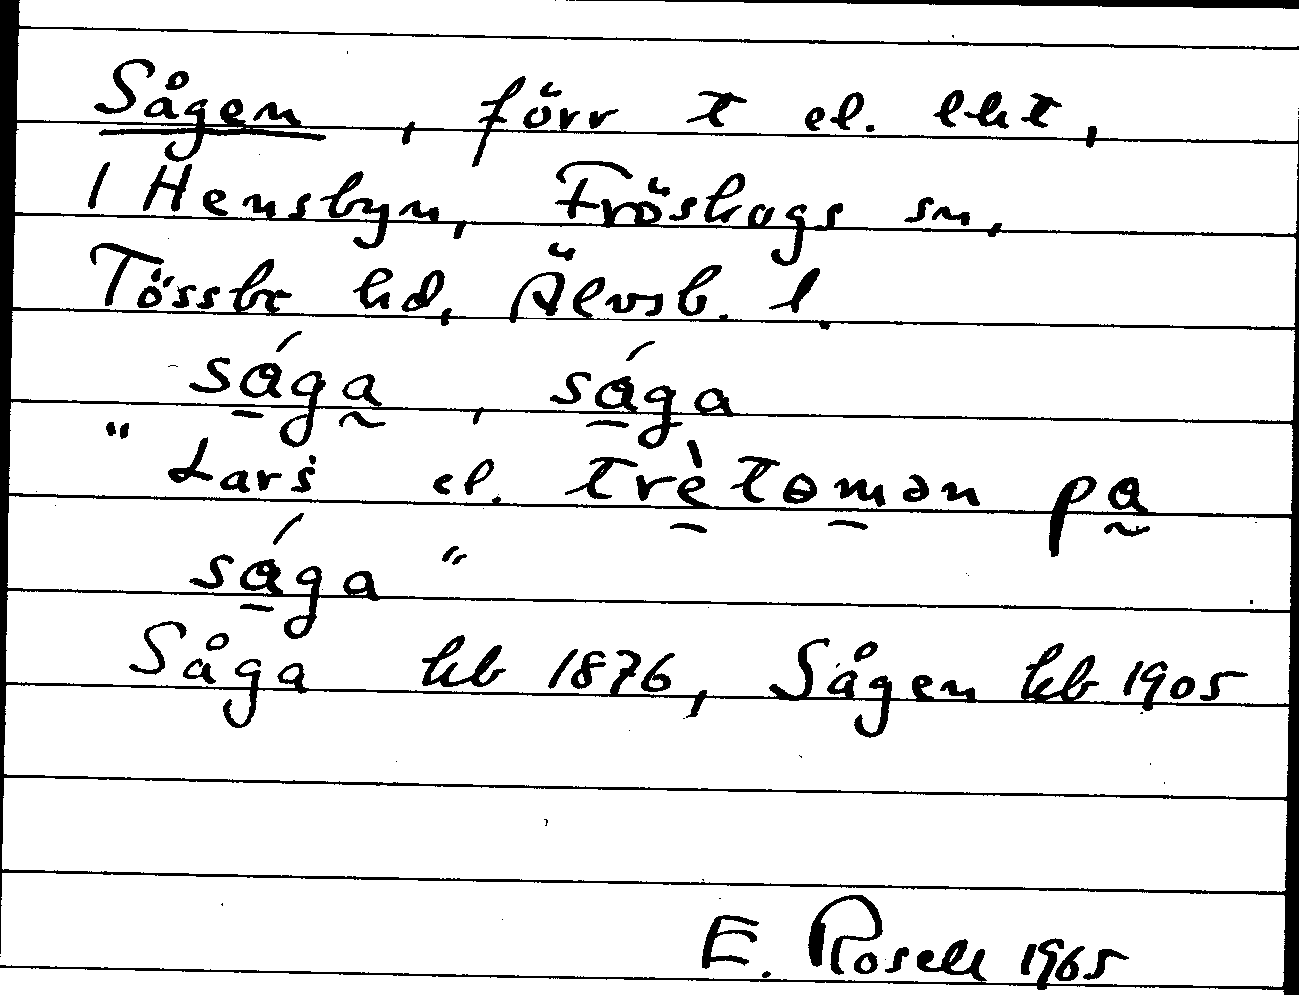 Sågen, förr t el. lht,
1 Hensbyn, Fröskogs sn,
Tössbo hd, Älvsb. l.
sága, sága
"Lars el. trètomən pa
sága"
Såga hb 1876, Sågen hb 1905
E. Rosell 1965